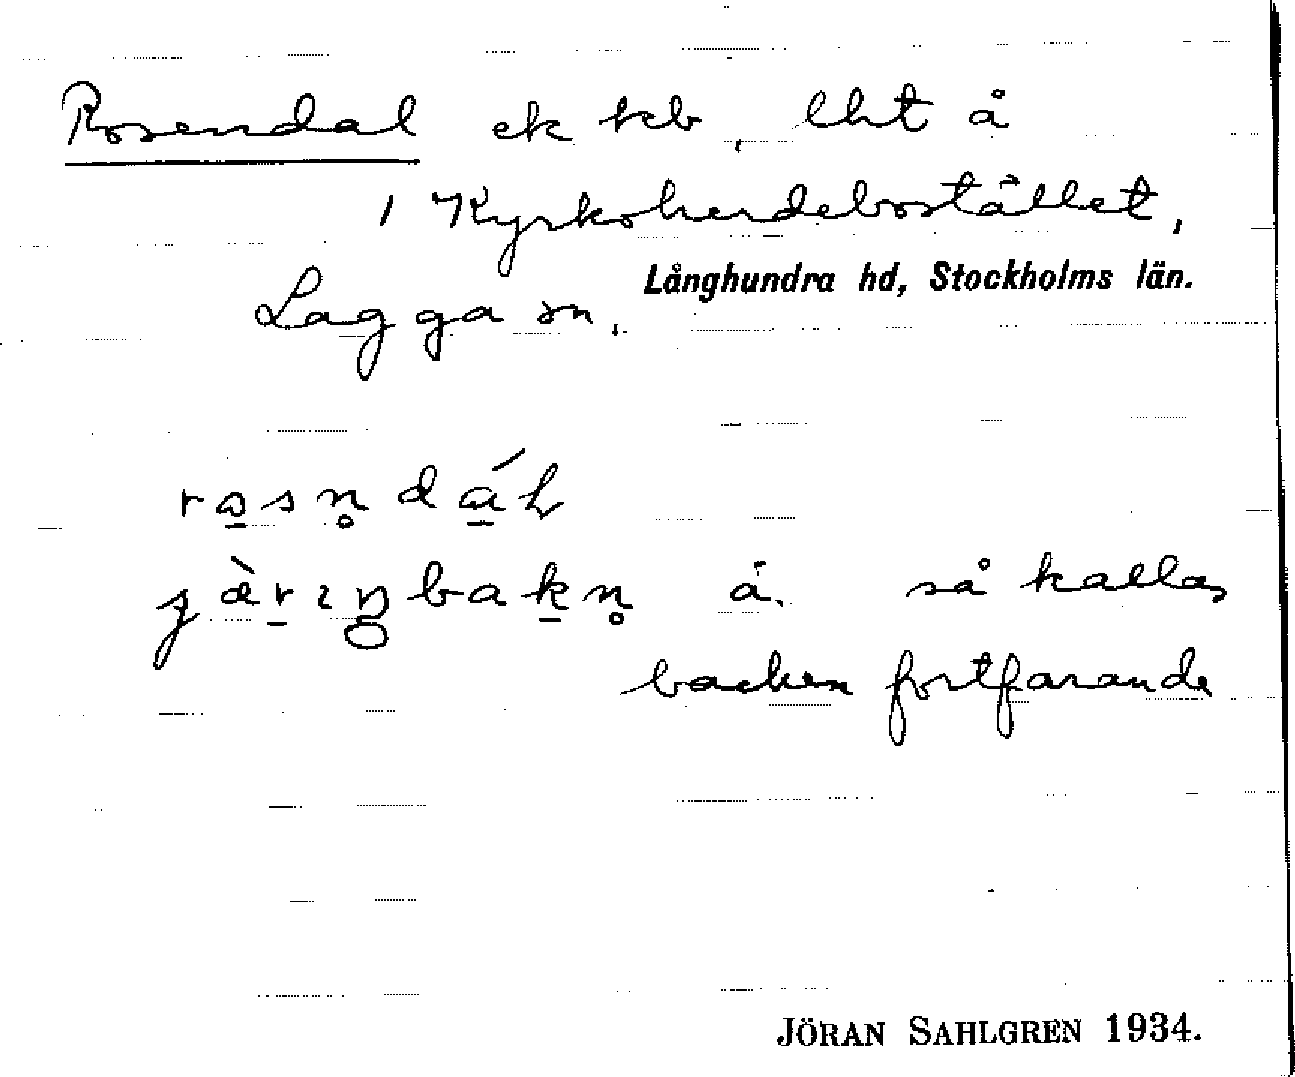 Rosendal ek kb, lht å
1 Kyrkoherdebostället,
Långhundra hd, Stockholms län.
Lagga sn.
rɷsn̥dáL
jæ̀rıŋbakn̥ å. så kallas
backen fortfarande
JÖRAN SAHLGREN 1934.